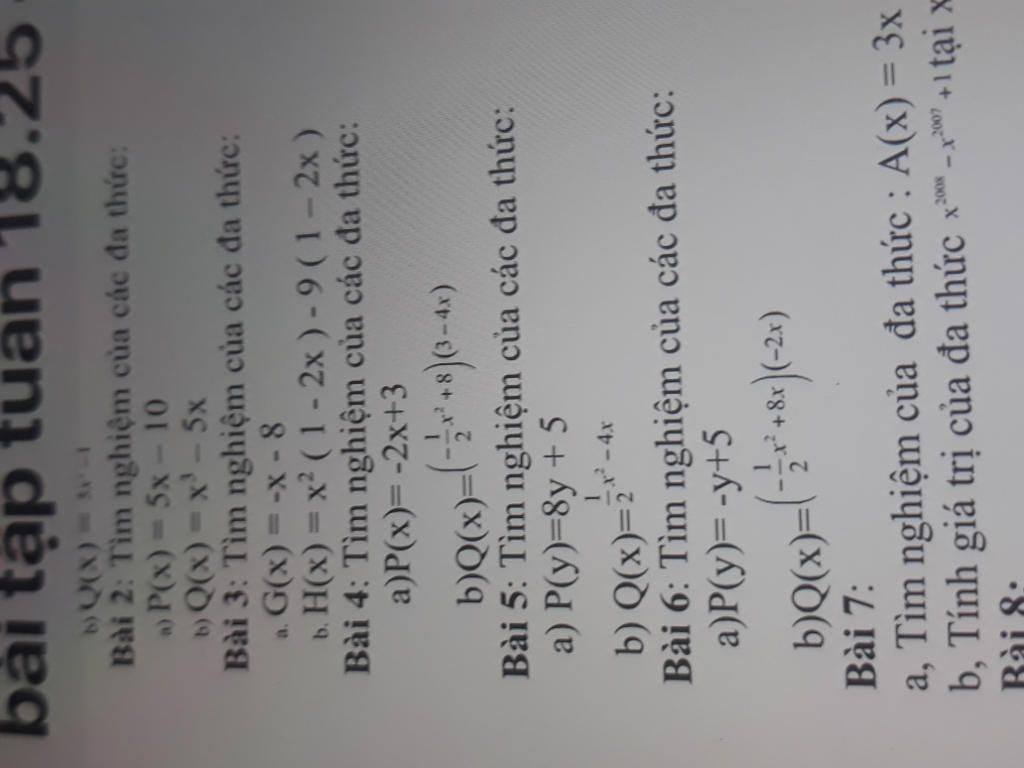 bài tập tuần 18.25
b) Q(x) = 3x² – 1
Bài 2: Tìm nghiệm của các đa thức:
a) P(x) = 5x – 10
b) Q(x) = x³ – 5x
Bài 3: Tìm nghiệm của các đa thức:
a. G(x) = -x - 8
b. H(x) = x² ( 1 - 2x ) - 9 ( 1 – 2x )
Bài 4: Tìm nghiệm của các đa thức:
a)P(x)= -2x+3
b)Q(x)=(-1/2x²+8)(3-4x)
Bài 5: Tìm nghiệm của các đa thức:
a) P(y)=8y + 5
b) Q(x)=1/2x²-4x
Bài 6: Tìm nghiệm của các đa thức:
a)P(y)= -y+5
b)Q(x)=(-1/2x²+8x)(-2x)
Bài 7:
a, Tìm nghiệm của đa thức : A(x) = 3x
b, Tính giá trị của đa thức x²⁰⁰⁸ – x²⁰⁰⁷ +1 tại x
Bài 8: